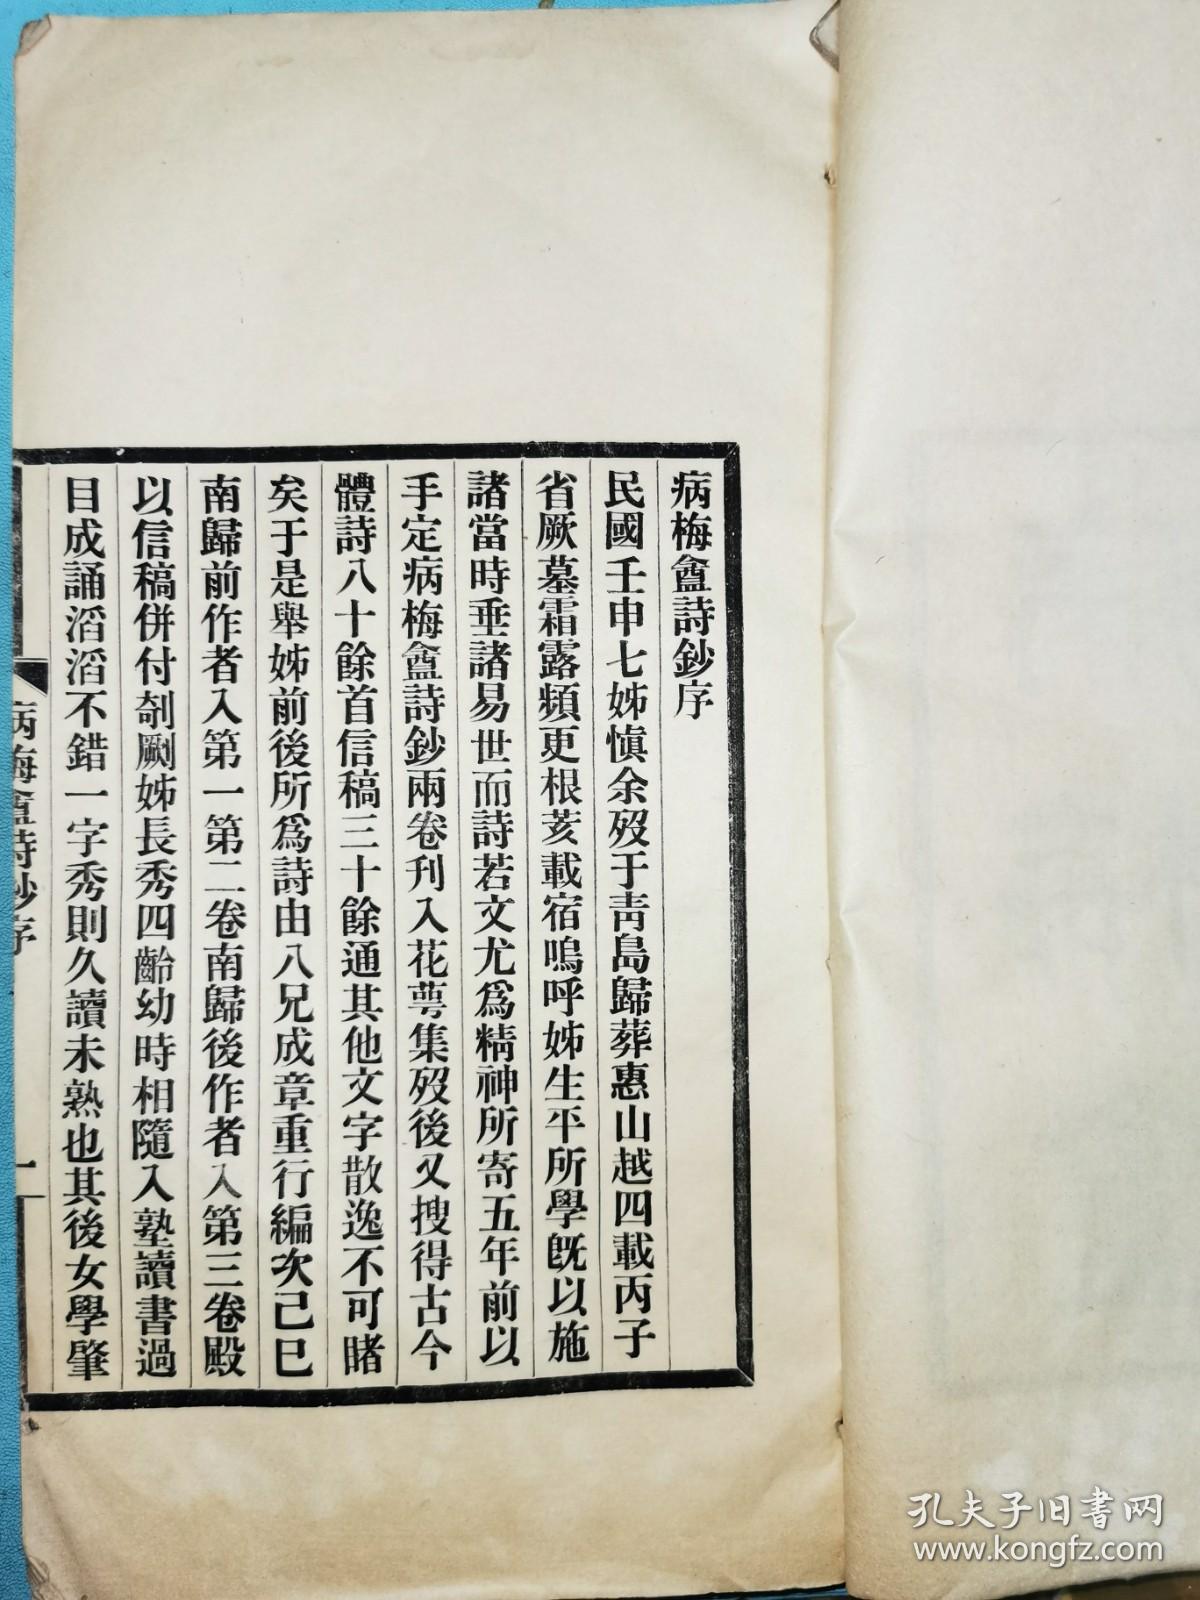 病梅盦詩鈔序
民國壬申七姊愼余歿于靑島歸葬惠山越四載丙子
省厥墓霜露頻更根荄載宿嗚呼姊生平所學旣以施
諸當時垂諸易世而詩若文尤爲精神所寄五年前以
手定病梅盦詩鈔兩卷刋入花萼集歿後又搜得古今
體詩八十餘首信稿三十餘通其他文字散逸不可睹
矣于是舉姊前後所爲詩由八兄成章重行編次己巳
南歸前作者入第一第二卷南歸後作者入第三卷殿
以信稿併付剞劂姊長秀四齡幼時相隨入塾讀書過
目成誦滔滔不錯一字秀則久讀未熟也其後女學肇
病梅盦詩鈔序
一
孔夫子旧书网
www.kongfz.com